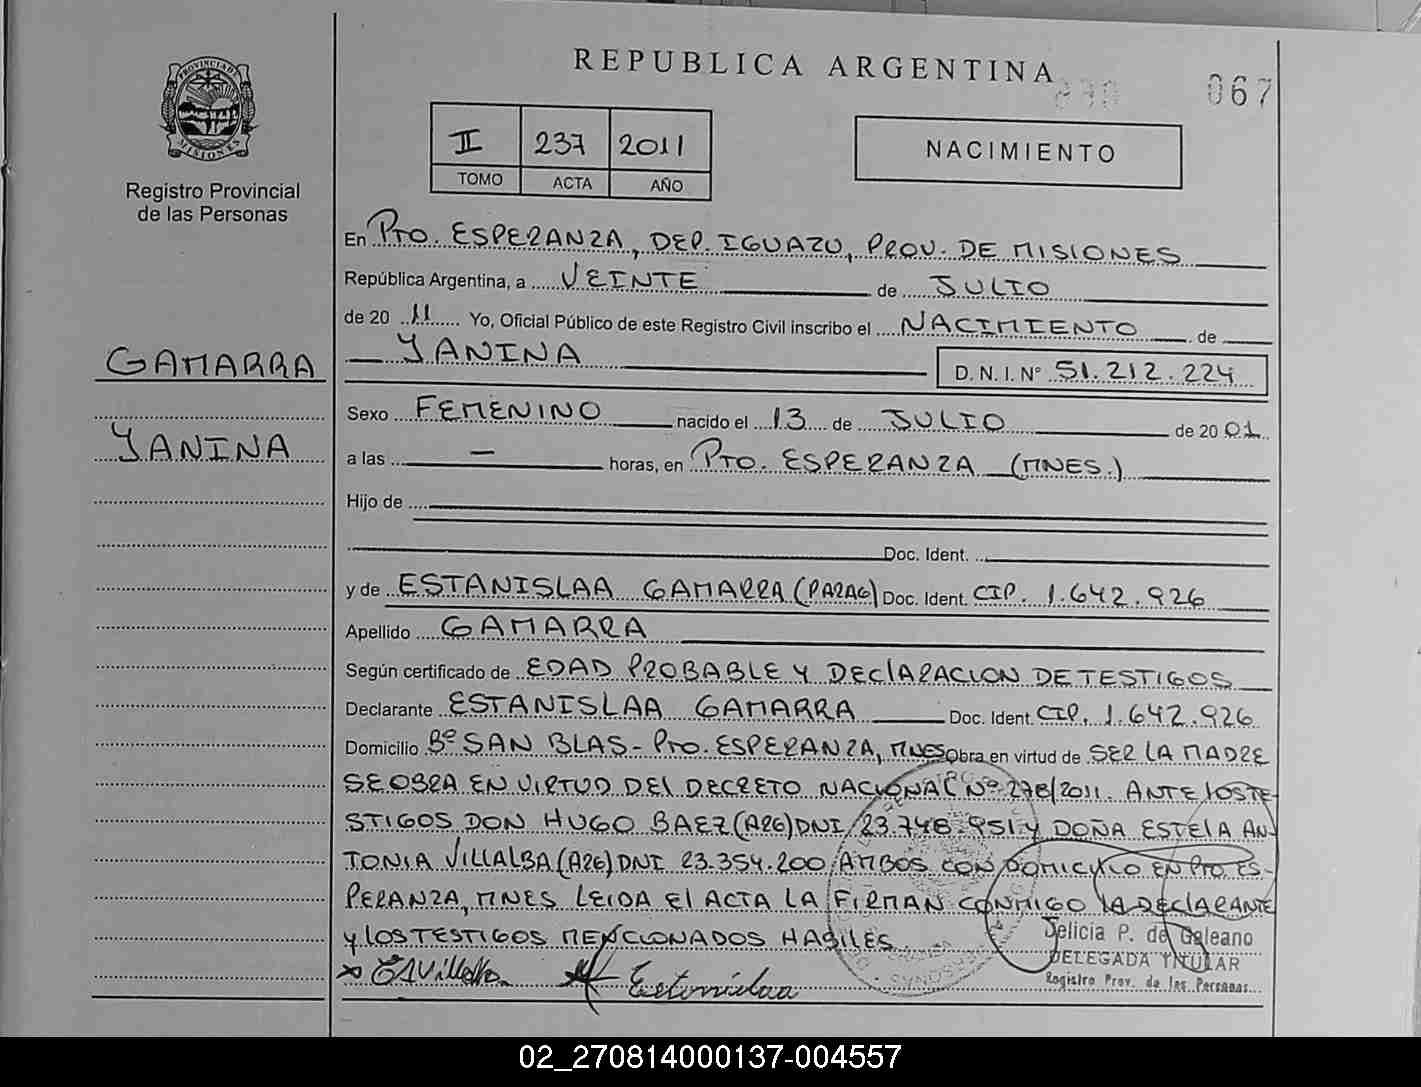 REPUBLICA ARGENTINA
067
PROVINCIA DE
MISIONES
Registro Provincial
de las Personas
II 237 2011
TOMO ACTA AÑO
NACIMIENTO
En PTO. ESPERANZA, DEP. IGUAZU, PROV. DE MISIONES
República Argentina, a VEINTE de JULIO
de 20 11 Yo, Oficial Público de este Registro Civil inscribo el NACIMIENTO de
GAMARRA
YANINA
D.N.I. N° 51.212.224
Sexo FEMENINO nacido el 13 de JULIO de 20 01
YANINA
a las - horas, en PTO. ESPERANZA (MNES.)
Hijo de
Doc. Ident.
y de ESTANISLAA GAMARRA (PARAG) Doc. Ident. CIP. 1.642.926
Apellido GAMARRA
Según certificado de EDAD PROBABLE Y DECLARACION DE TESTIGOS
Declarante ESTANISLAA GAMARRA Doc. Ident. CIP. 1.642.926
Domicilio Bº SAN BLAS - PTO. ESPERANZA, MNES Obra en virtud de SER LA MADRE
SE OBRA EN VIRTUD DEL DECRETO NACIONAL Nº 278/2011. ANTE LOS TE-
STIGOS DON HUGO BAEZ (ARG) DNI 23.748.951 Y DOÑA ESTELA AN-
TONIA VILLALBA (ARG) DNI 23.354.200 AMBOS CON DOMICILIO EN PTO. ES-
PERANZA, MNES LEIDA EL ACTA LA FIRMAN CONMIGO LA DECLARANTE
Y LOS TESTIGOS MENCIONADOS HABILES
Felicia P. de Galeano
DELEGADA TITULAR
Registro Prov. de las Personas
02_270814000137-004557